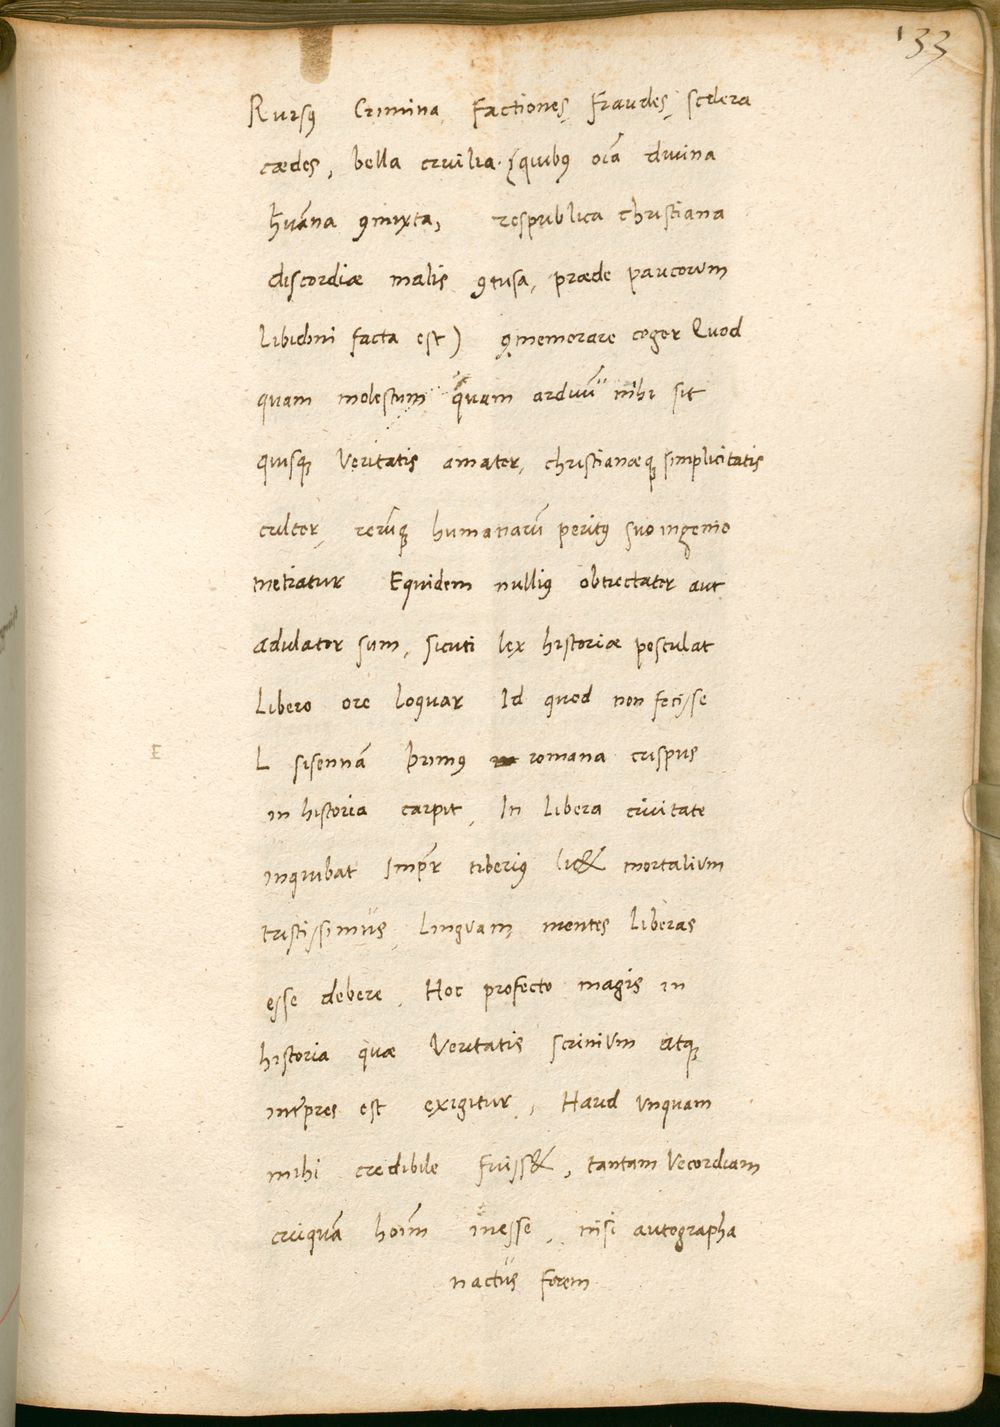 133
Rursꝰ Crimina, Factiones, Fraudes, scelera
cædes, bella civilia. (quibꝰ oīa divina
hūana ꝯmixta, respublica christiana
discordiæ malis ꝯtusa, præde paucorum
Libidini facta est) ꝯmemorare cogor Quod
quam molestum quam arduū mihi sit
quisqꝫ Veritatis amator, christianæqꝫ simplicitatis
cultor, rerūqꝫ humanarū peritꝰ suo ingenio
metiatur Equidem nulliꝰ obtrectator aut
adulator sum, sicuti lex historiæ postulat
Libero ore loquar Id quod non fecisse
E
L sisennā primꝰ romana crispus
in historia carpit, In libera civitate
inquibat Imp̄r tiberiꝰ lic& mortalium
tristissimus, Linguam, mentes liberas
esse debere, Hoc profecto magis in
historia quæ Veritatis scrinium atqꝫ
int̄pres est exigitur, Haud unquam
mihi credibile fuiss&, tantam Vecordiam
cuiquā hoīm inesse, nisi autographa
nactus forem